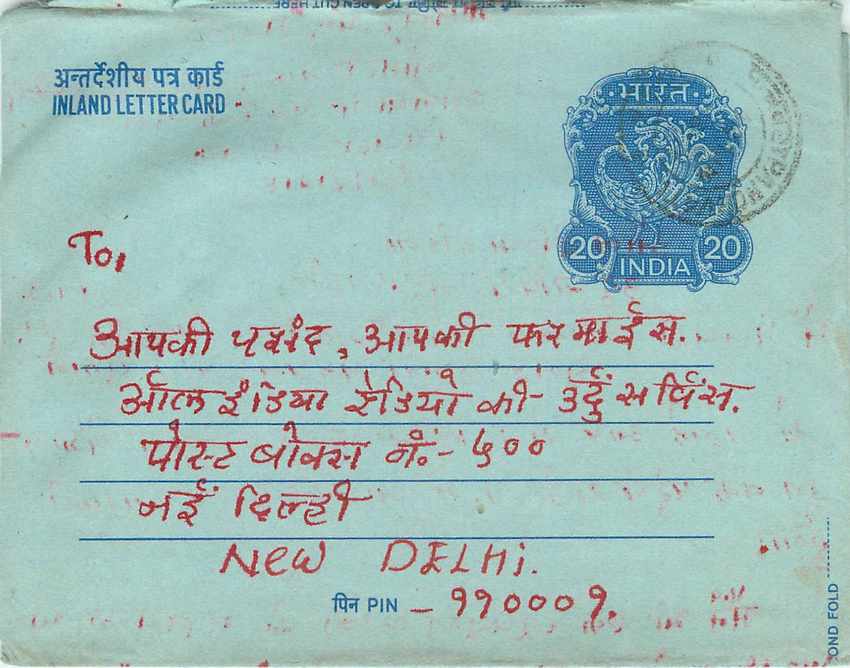 अन्तर्देशीय पत्र कार्ड
INLAND LETTER CARD
भारत
20 20
INDIA
To,
आपकी पसंद, आपकी फरमाईस.
ऑल इंडिया रेडियो की- उर्दु सर्विस.
पोस्ट बोक्स नं.- ५००
नई दिल्ही
NeW DELHi.
पिन PIN - ११०००१.
OND FOLD